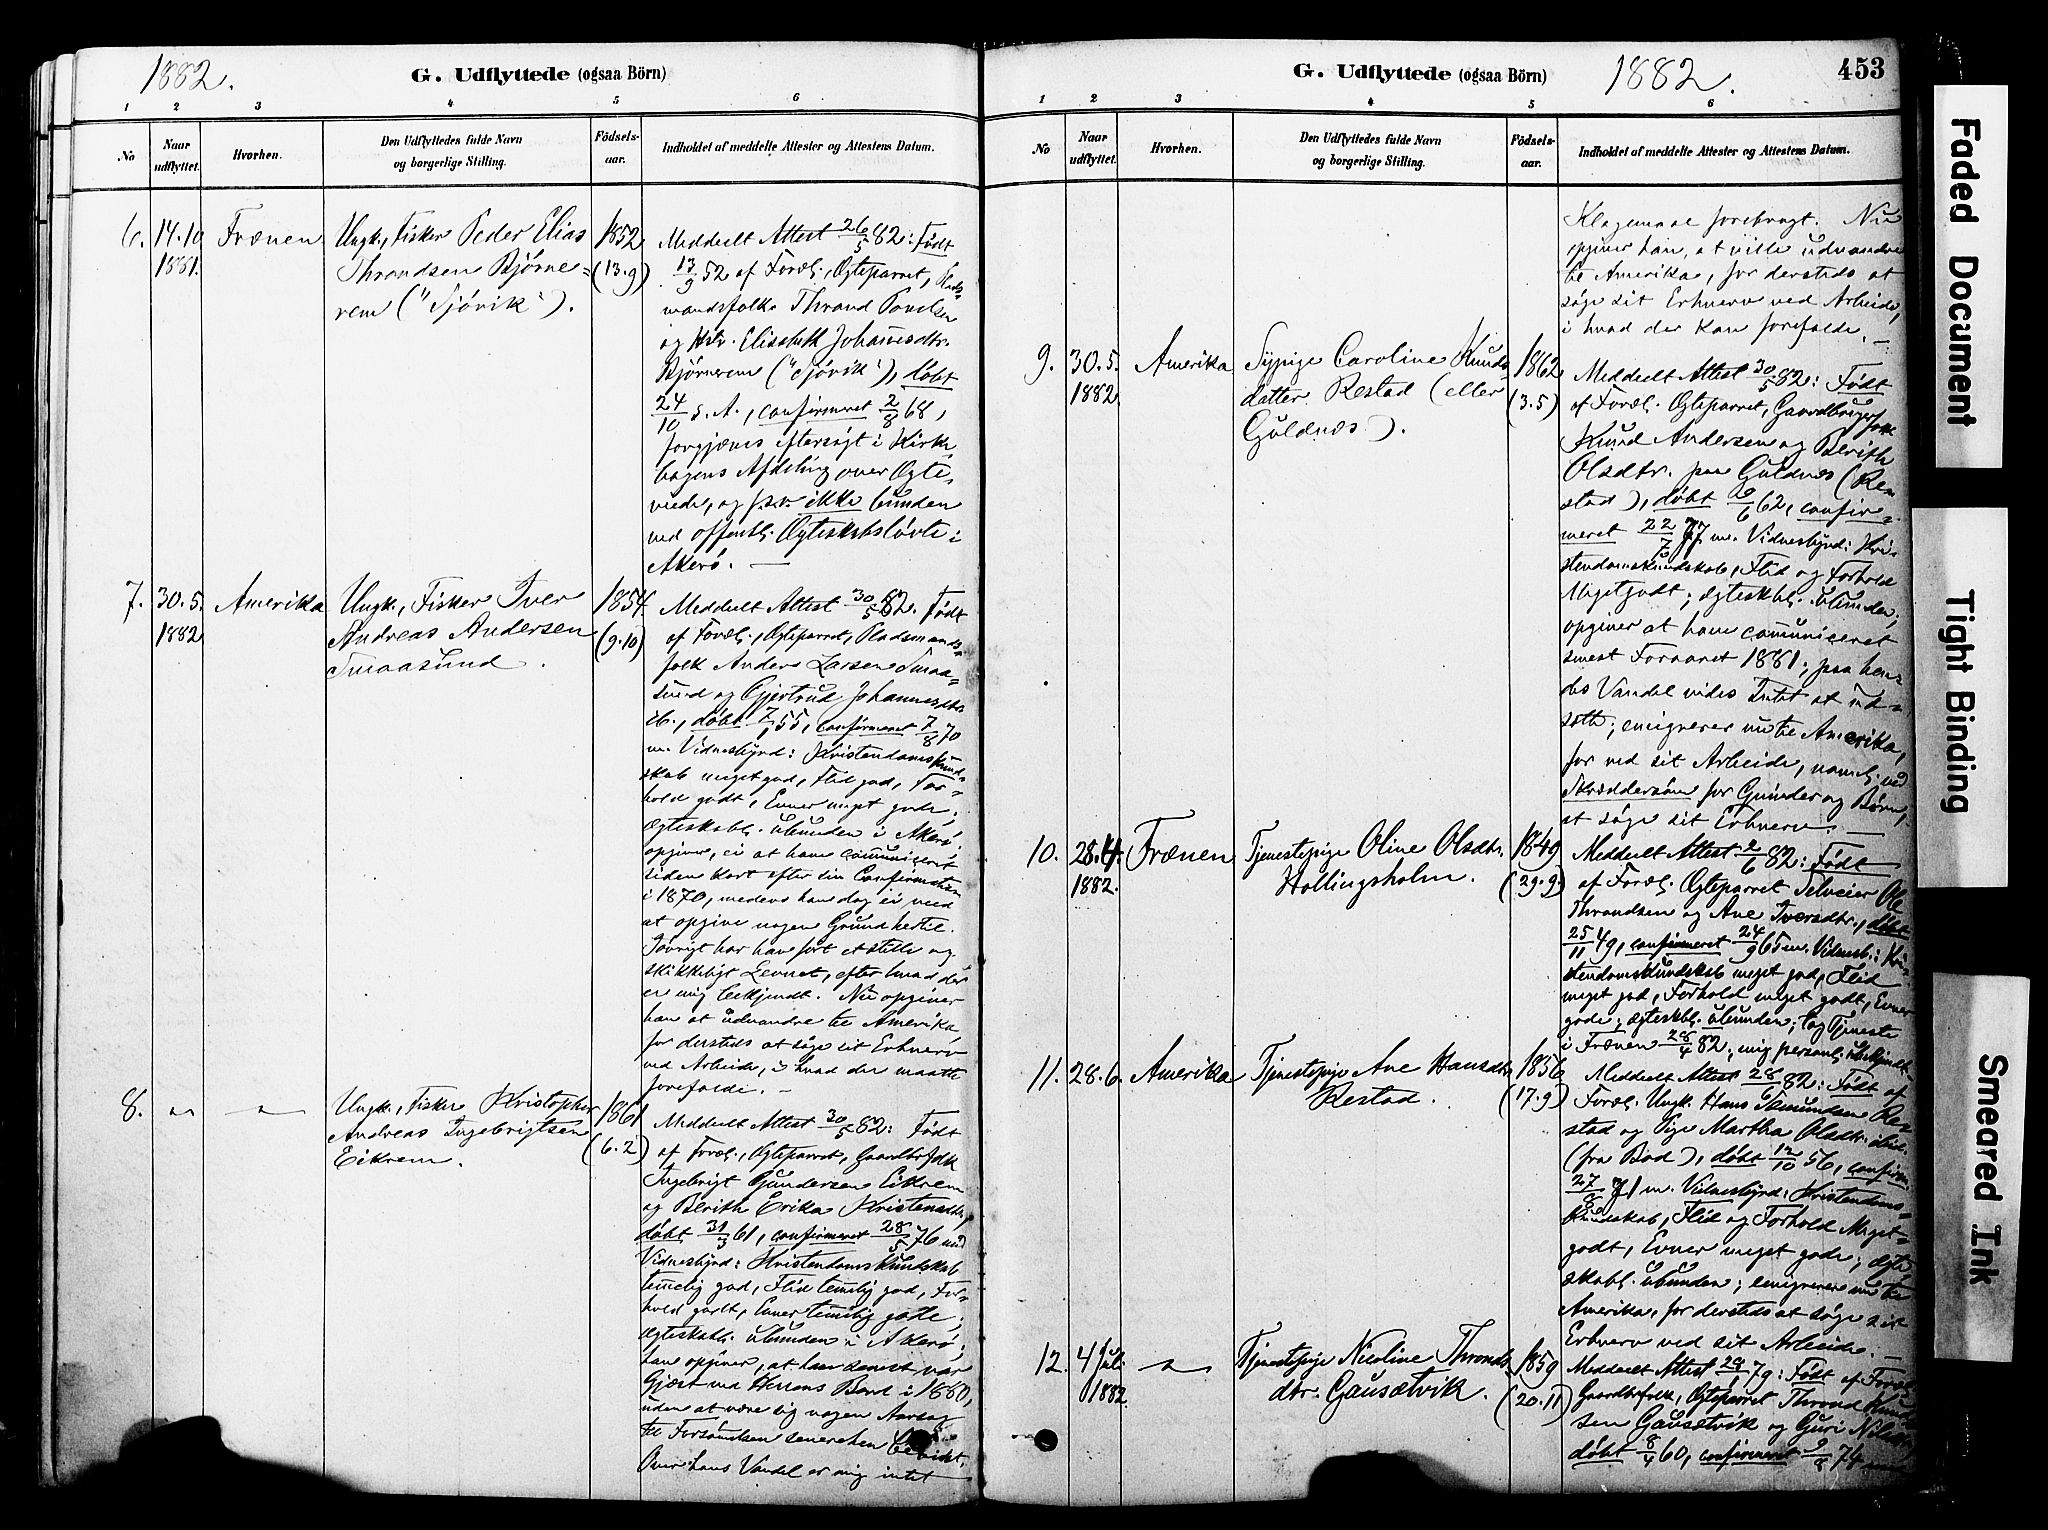 1882.
G. Udflyttede (ogsaa Börn)
1 2 3 4 5 6
No
Naar udflyttet.
Hvorhen.
Den Udflyttedes fulde Navn og borgerlige Stilling.
Födsels-aar.
Indholdet af meddelte Attester og Attestens Datum.
6. 14.10 1881.
Frænen
Ungk., Fisker Peder Elias
Throndsen Bjørne=
rem ("Sjövik").
1852
(13.9)
Meddeelt Attest 26/5 82: Født
13/9 52 af Foræl., Ægteparret, Plads-
mandsfolk Thrond Povelsen
og Hstr. Elisabeth Johannesdtr.
Bjørnerem ("Sjövik"), døbt
24/10 s. A., confirmeret 2/8 68,
forgjæves eftersøgt i Kirke-
bogens Afdeling over Ægte-
viede, og ikke bunden
ved offentl. Ægteskabsløvte i
Akerö. —
7. 30.5. 1882
Amerika
Ungk., Fisker Iver
Andreas Andersen
Smaasund.
1854.
(9.10)
Meddeelt Attest 30/5 82. Født
af Foræl., Ægteparret, Pladsmands-
folk Anders Larsen Smaa-
sund og Gjertrud Johannesdtr.
ib., døbt 55, confirmeret 7/8 70
m. Vidnesbyrd: Kristendomskund-
skab meget god, Flid god, For-
hold godt, Evner meget gode;
ægteskabl. ubunden i Akerö;
opgiver, ei at have communiceret
siden kort efter sin Confirmation
i 1870, medens han dog ei veed
at opgive nogen Grund hertil.
Iövrigt har han fört et stille og
skikkeligt Levnet, efter hvad der
er mig bekjendt. Nu opgiver
han at udvandre til Amerika,
for dersteds at söge sit Erhverv
ved Arbeide, i hvad der maatte
forefalde. —
8. — " —
— " —
Ungk., Fisker Kristopher
Andreas Ingebrigtsen
Eikrem.
1861
(6.2)
Meddeelt Attest 30/5 82: Født
af Foræl., Ægteparret, Gaardbrfolk
Ingebrigt Gundersen Eikrem
og Berith Erika Kristensdtr.,
döbt 31/3 61, confirmeret 28/5 76 med
Vidnesbyrd: Kristendomskundskab
temelig god, Flid temlig god, For-
hold godt, Evner temlig gode;
ægteskabl. ubunden i Akerö;
han opgiver, at han senest var
Gjæst ved Herrens Bord i 1880,
uden at være sig nogen Aarsag
til Forsömelsen senerehen bevidst.
Over hans Vandel er mig intet
G. Udflyttede (ogsaa Börn)
1882.
453
1 2 3 4 5 6
No
Naar udflyttet.
Hvorhen.
Den Udflyttedes fulde Navn og borgerlige Stilling.
Födsels-aar.
Indholdet af meddelte Attester og Attestens Datum.
Klagemaal forebragt. Nu
opgiver han, at ville udvandre
til Amerika, for dersteds at
söge sit Erhverv ved Arbeide,
i hvad der kan forefalde. —
9. 30.5. 1882
Amerika
Sypige Caroline Knuds-
datter Restad (eller
Guldnæs).
1862
(3.5)
Meddeelt Attest 30/5 82: Født
af Foræl. Ægteparret, Gaardbrugerfolk
Knud Andersen og Berith
Olsdtr. paa Guldnæs (Re-
stad), døbt 62, confir-
meret 22/7 77 m. Vidnesbyrd: Kri-
stendomskundskab, Flid og Forhold
Megetgodt; ægteskbl. ubunden,
opgiver at have communiceret
senest Foraaret 1881; paa hen-
des Vandel vides Intet at ud-
sætte; emigrerer nu til Amerika,
for ved sit Arbeide, navnl. ved
Skræddersöm for Qvinder og Börn,
at söge sit Erhverv. —
10. 28.4. 1882.
Frænen
Tjenestepige Oline Olsdtr.
Hollingsholm.
1849
(29.9)
Meddeelt Attest 2/6 82: Født
af Foræl. Ægteparret Selveier Ole
Throndsen og Ane Iversdtr., döbt
25/11 49, confirmeret 24/9 65 m. Vidnesb.: Kri-
stendomskundskab meget god, Flid
meget god, Forhold meget godt, Evner
gode; ægteskbl. ubunden; tog Tjeneste
i Frænen 28/4 82; mig personl. ubekjendt.
11. 28.6.
Amerika
Tjenestepige Ane Hansdtr.
Restad.
1856
(17.9)
Meddeelt Attest 28/6 82: Født af
Foræl. Ungk. Hans Asmundsen Re-
stad og Pige Martha Olsdtr. ibid.
(fra Bod), döbt 12/10 56, confirm.
27/8 71 m. Vidnesbyrd: Kristendoms-
kundskab, Flid og Forhold Meget-
godt, Evner meget gode; ægte-
skabl. ubunden; emigrerer nu til
Amerika, for dersteds at söge sit
Erhverv ved sit Arbeide. —
12. 4 Juli 1882
— " —
Tjenestepige Nicoline Thronds-
dtr. Gausætvik.
1859
(20.11)
Meddeelt Attest 79: Født af Foræl.
Gaardbrfolk, Ægteparret Thrond Knud-
sen Gausetvik og Guri Nilsdtr.,
döbt 8/4 60, confirmeret 74 med
Faded Document
Tight Binding
Smeared Ink